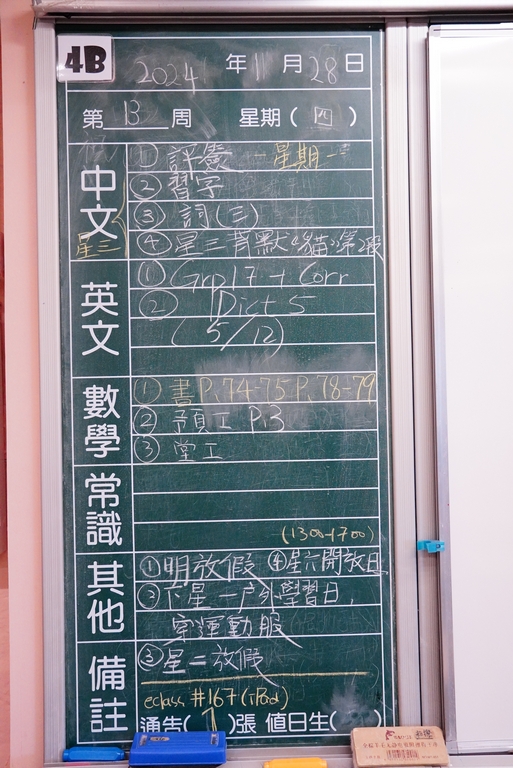 4B
2024 年 11 月 28 日
第 13 周 星期 ( 四 )
中文
星三
① 評卷 星期一
② 習字
③ 詞(三)
④ 星三背默《貓》第2段
英文
① Grp17 + Corr
② Dict 5
(5/12)
數學
① 書 P.74-75 P.78-79
② 預工 P.3
③ 堂工
常識
(1300-1700)
其他
① 明放假 ④ 星六開放日
② 下星一戶外學習日,
穿運動服
備註
③ 星二放假
eclass #167 (iPad)
通告( 1 )張 值日生( )